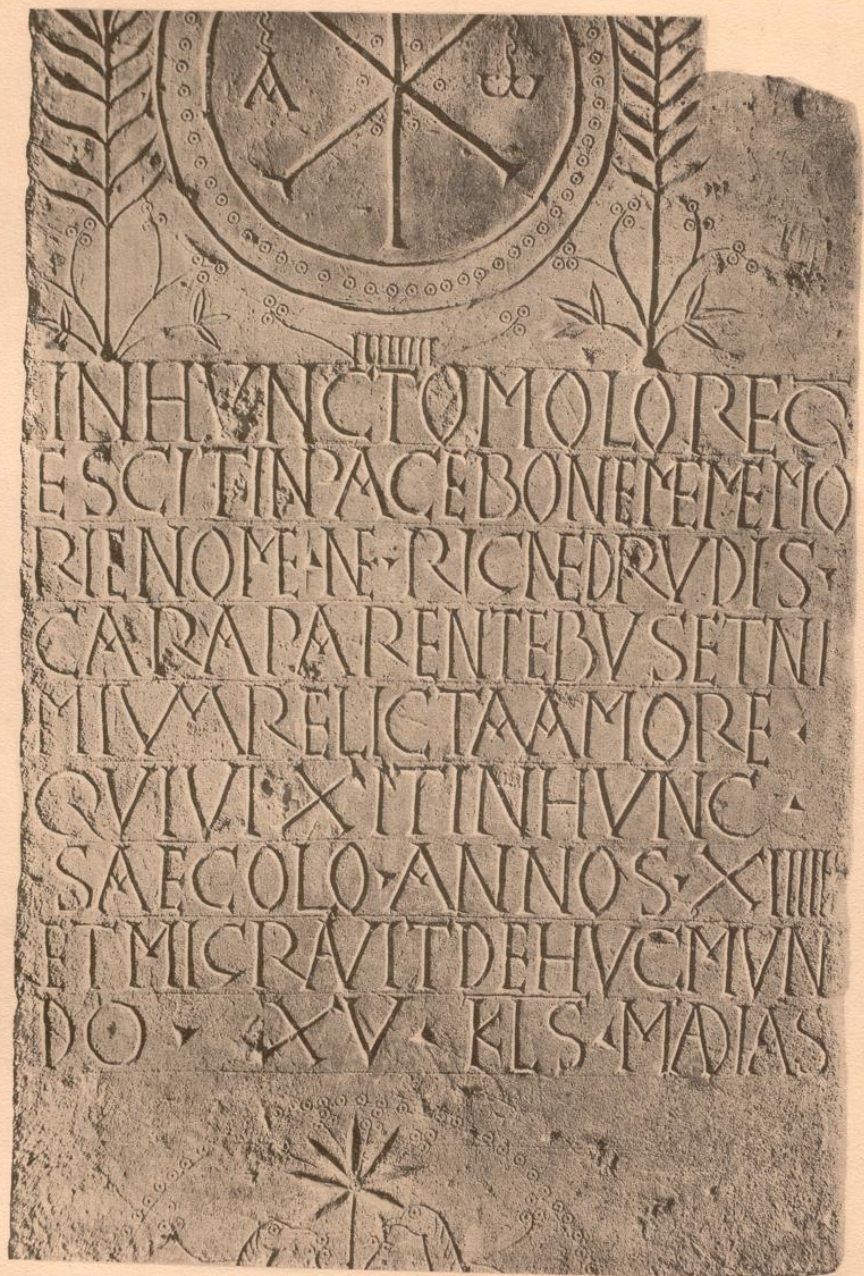 A ω
INHVNCTOMOLOREQ
ESCITINPACEBONEMEMEMO
RIENOME·NE·RICNEDRVDIS·
CARAPARENTEBVSETNI
MIVMRELICTAAMORE·
QVIVI·XITINHVNC·
SAECOLO·ANNOS·XIIIII
ETMIGRAVITDEHVCMVN
DO · XV · KLS·MADIAS